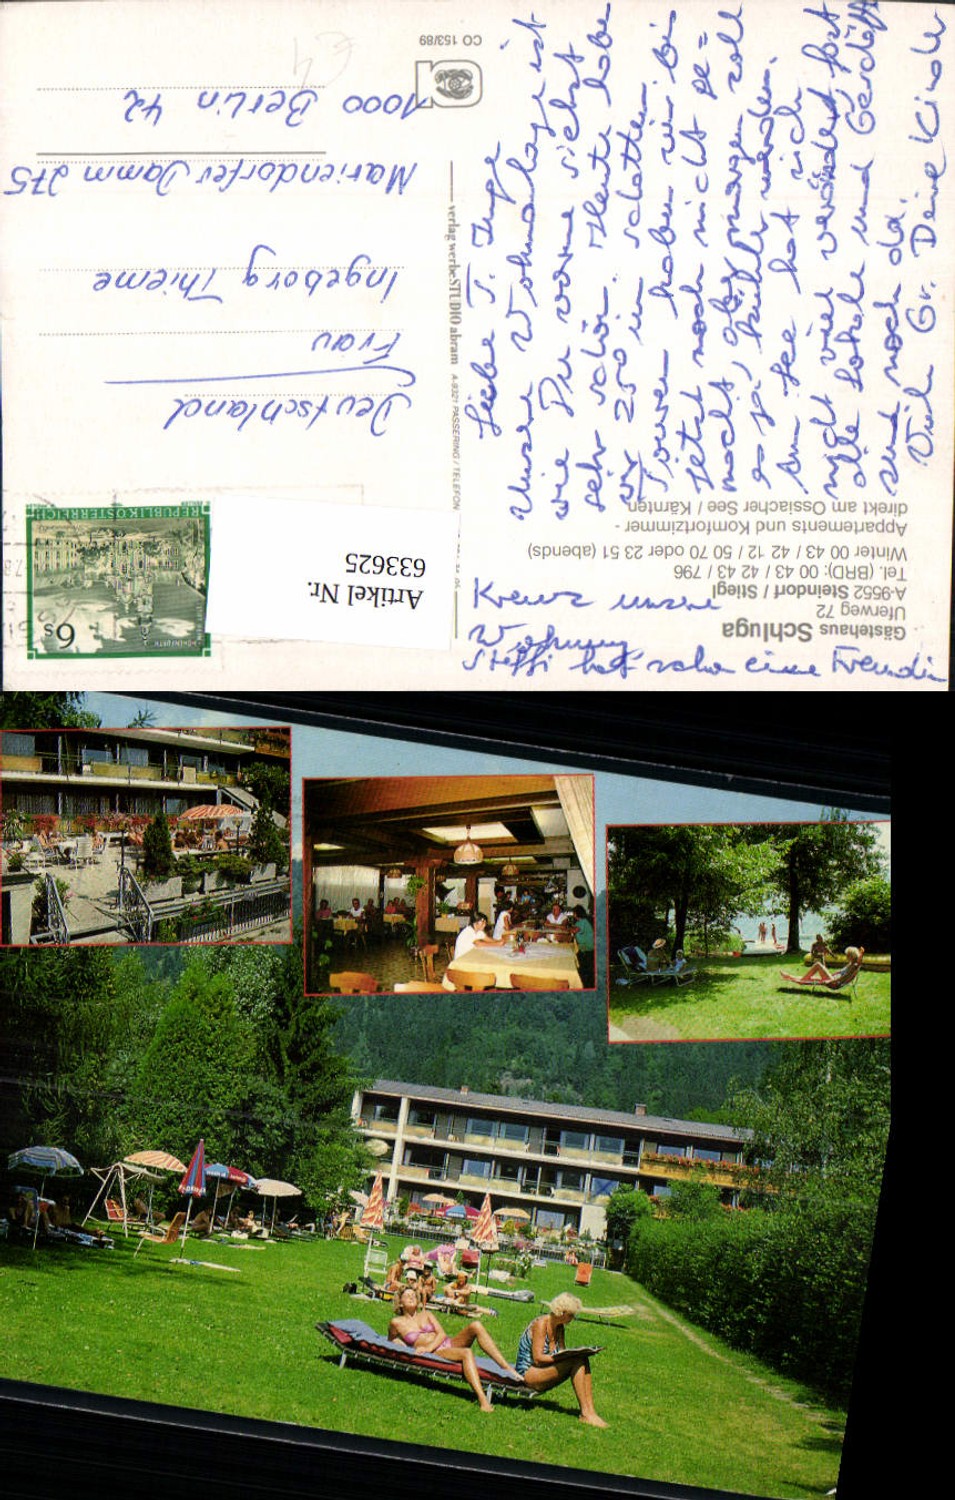 Gästehaus Schluga
Uferweg 72
A-9552 Steindorf / Stiegl
Tel. (BRD): 00 43 / 42 43 / 796
Winter 00 43 / 42 12 / 50 70 oder 23 51 (abends)
Appartements und Komfortzimmer -
direkt am Ossiacher See / Kärnten
Liebe T. Inge
Unsere Wohnanlage ist
wie Du vorne siehst
sehr schön. Heute habe
wir 25° im Schatten.
haben wir bis
jetzt noch nicht ge=
macht, aber morgen soll
es ja kühler werden.
Am See hat sich
nicht viel verändert, fast
alle Lokale und Geschäft
sind noch da.
Viele Gr. Deine Kinder
Kreuz unsere
Wohnung.
Steffi hat schon eine Freundin
verlag werbeSTUDIO abram A-9321 PASSERING / TELEFON
CO 153/89
REPUBLIK ÖSTERREICH
6s
Artikel Nr.
633625
Deutschland
Frau
Ingeborg Thieme
Mariendorfer Damm 275
1000 Berlin 42
€4